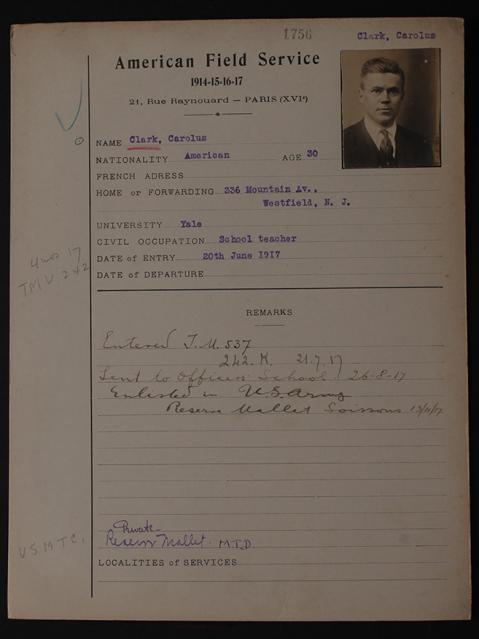 1756
Clark, Carolus
American Field Service
1914-15-16-17
21, Rue Raynouard — PARIS (XVIe)
NAME Clark, Carolus
NATIONALITY American AGE 30
FRENCH ADRESS
HOME or FORWARDING 236 Mountain Av.,
Westfield, N. J.
UNIVERSITY Yale
CIVIL OCCUPATION School teacher
DATE of ENTRY 20th June 1917
DATE of DEPARTURE
17
TMU 242
REMARKS
Entered T.M. 537
242. K. 21.7.17
Sent to Officers School 26-8-17
Enlisted in U.S. Army
Reserve Mallet Soissons
Private
Reserve Mallet. M.T.D.
USMTC.
LOCALITIES of SERVICES